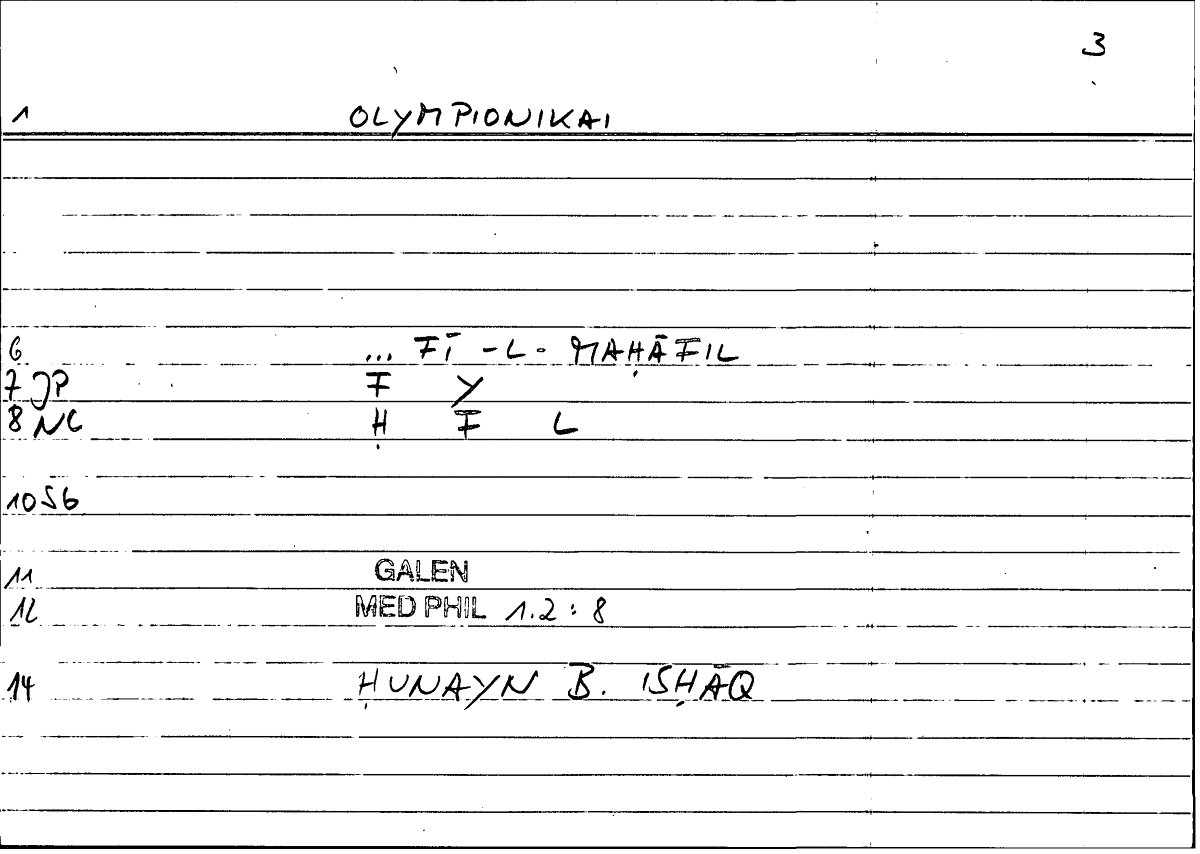 3
1 OLYMPIONIKAI
6 ... FĪ -L- MAḤĀFIL
7 JP F Y
8 NC Ḥ F L
10 Sb
11 GALEN
12 MED PHIL 1.2 : 8
14 ḤUNAYN B. ISḤĀQ